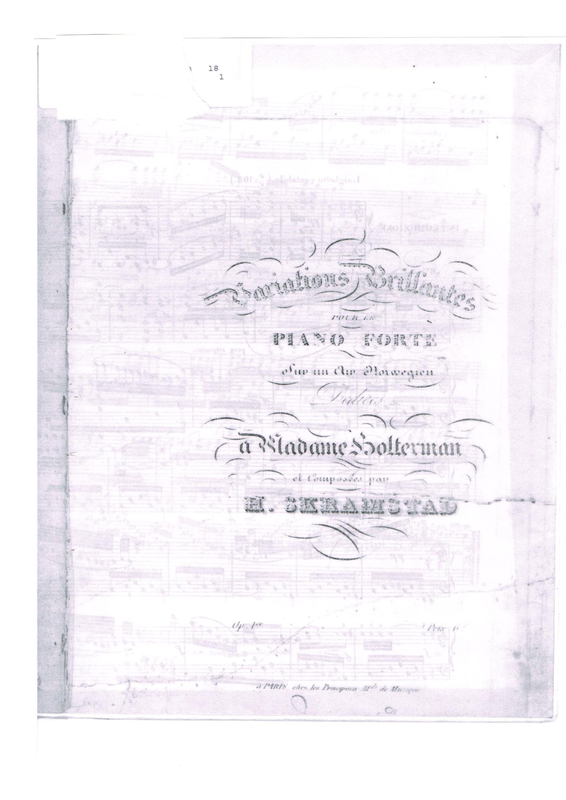 18
1
Variations Brillantes
POUR LE
PIANO FORTE
Sur un Air Norwegien
Dédiées
à Madame Holterman
et Composées par
H. SKRAMSTAD
Op. 1
Prix
à PARIS chez les Principaux Mds de Musique